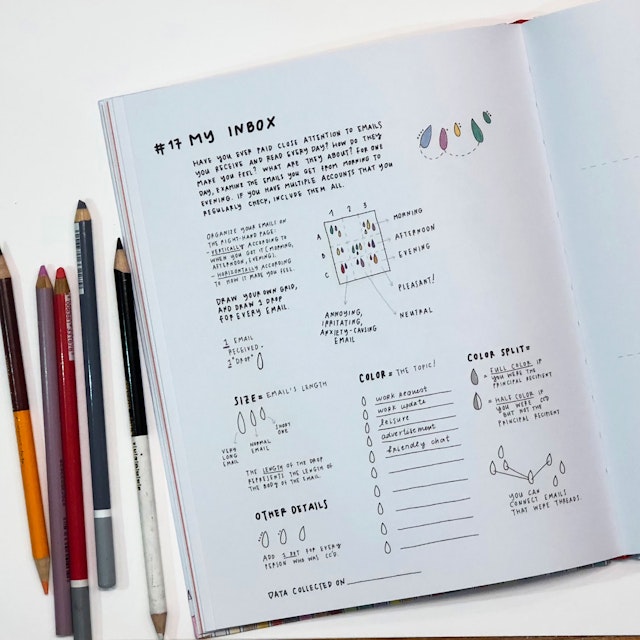 #17 MY INBOX
HAVE YOU EVER PAID CLOSE ATTENTION TO EMAILS
YOU RECEIVE AND READ EVERY DAY? HOW DO THEY
MAKE YOU FEEL? WHAT ARE THEY ABOUT? FOR ONE
DAY, EXAMINE THE EMAILS YOU GET FROM MORNING TO
EVENING. IF YOU HAVE MULTIPLE ACCOUNTS THAT YOU
REGULARLY CHECK, INCLUDE THEM ALL.
ORGANIZE YOUR EMAILS ON
THE RIGHT-HAND PAGE:
- VERTICALLY ACCORDING TO
WHEN YOU GOT IT (MORNING,
AFTERNOON, EVENING).
- HORIZONTALLY ACCORDING
TO HOW IT MADE YOU FEEL
DRAW YOUR OWN GRID,
AND DRAW 1 DROP
FOR EVERY EMAIL.
1 EMAIL
RECEIVED =
1 "DROP"
1 2 3
A
B
C
MORNING
AFTERNOON
EVENING
PLEASANT!
NEUTRAL
ANNOYING,
IRRITATING,
ANXIETY-CAUSING
EMAIL
SIZE = EMAIL'S LENGTH
VERY
LONG
EMAIL
NORMAL
EMAIL
SHORT
ONE
THE LENGTH OF THE DROP
REPRESENTS THE LENGTH OF
THE BODY OF THE EMAIL.
OTHER DETAILS
ADD 1 DOT FOR EVERY
PERSON WHO WAS CC'D.
COLOR = THE TOPIC!
work request
work update
leisure
advertisement
friendly chat
COLOR SPLIT =
= FULL COLOR IF
YOU WERE THE
PRINCIPAL RECIPIENT
= HALF COLOR IF
YOU WERE CC'D
BUT NOT THE
PRINCIPAL RECIPIENT
YOU CAN
CONNECT EMAILS
THAT WERE THREADS.
DATA COLLECTED ON